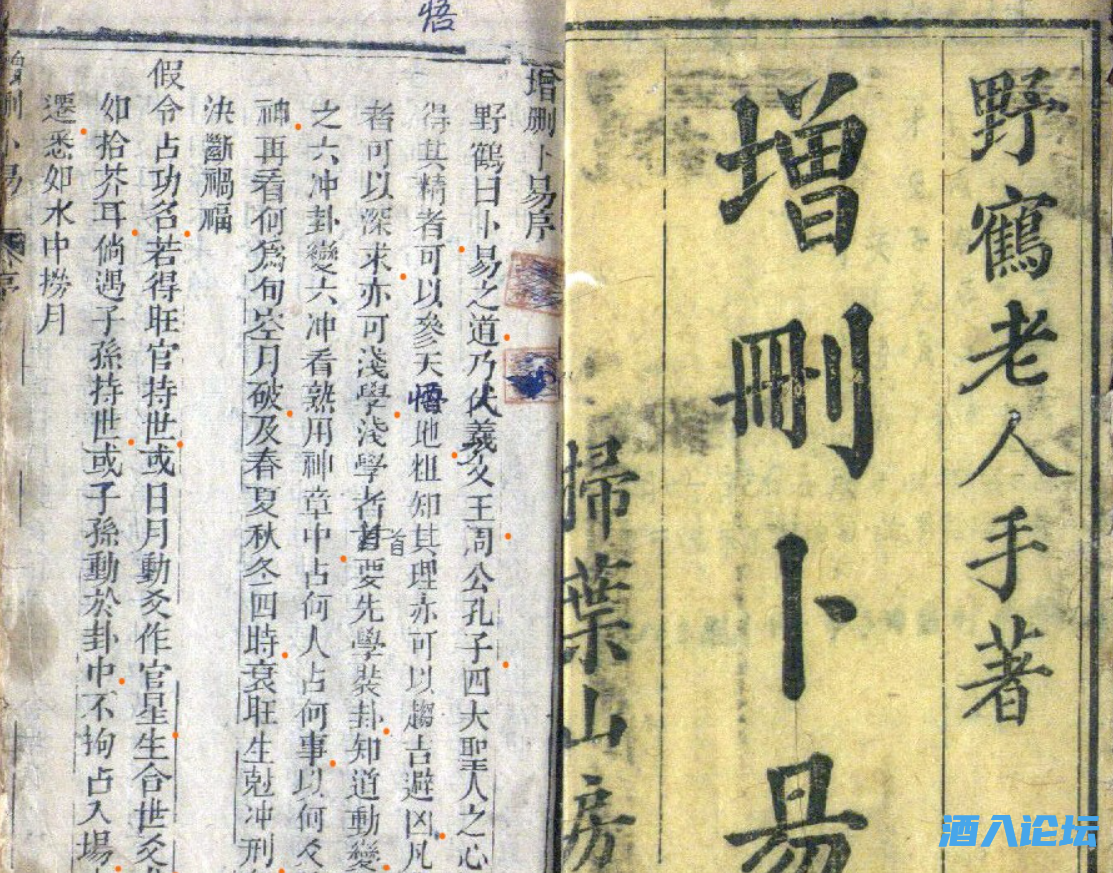 野鶴老人手著
增刪卜易
掃葉山房
增删卜易序
野鶴曰卜易之道乃伏羲文王周公孔子四大聖人之心
得其精者可以參天悟地粗知其理亦可以趨吉避凶凡
悟
首
者可以深求亦可淺學淺學者首要先學裝卦知道動變
之六冲卦變六冲看熟用神章中占何人占何事以何爻
神再看何爲旬空月破及春夏秋冬四時衰旺生尅冲刑
決斷禍福
假令占功名若得旺官持世或日月動爻作官星生合世爻
如拾芥耳倘遇子孫持世或子孫動於卦中不拘占入場
遷悉如水中撈月
增删卜易
序
酒入论坛